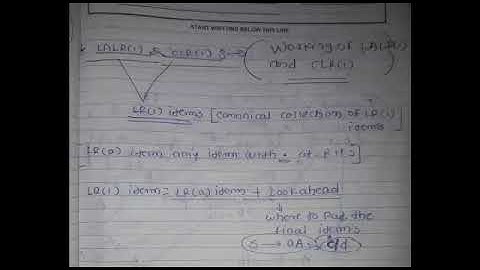 START WRITING BELOW THIS LINE
LALR(1) & CLR(1) :→ (Working of LALR(1)
and CLR(1))
LR(1) items [canonical collection of LR(1)
items]
LR(0) item any item with • at RHS]
LR(1) items = LR(0) items + Lookahead
↓
where to put the
final items
S → aA, c/d